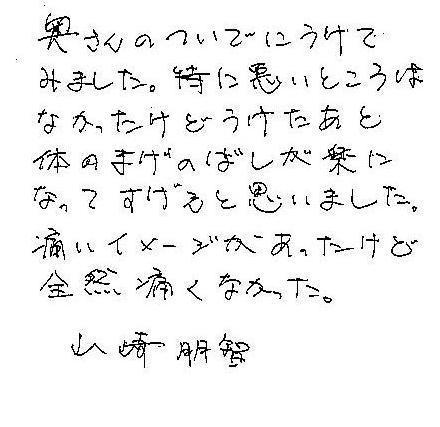 奥さんのついでにうけて
みました。特に悪いところは
なかったけどうけたあと
体のまげのばしが楽に
なってすげえと思いました。
痛いイメージがあったけど
全然痛くなかった。
山崎朋智